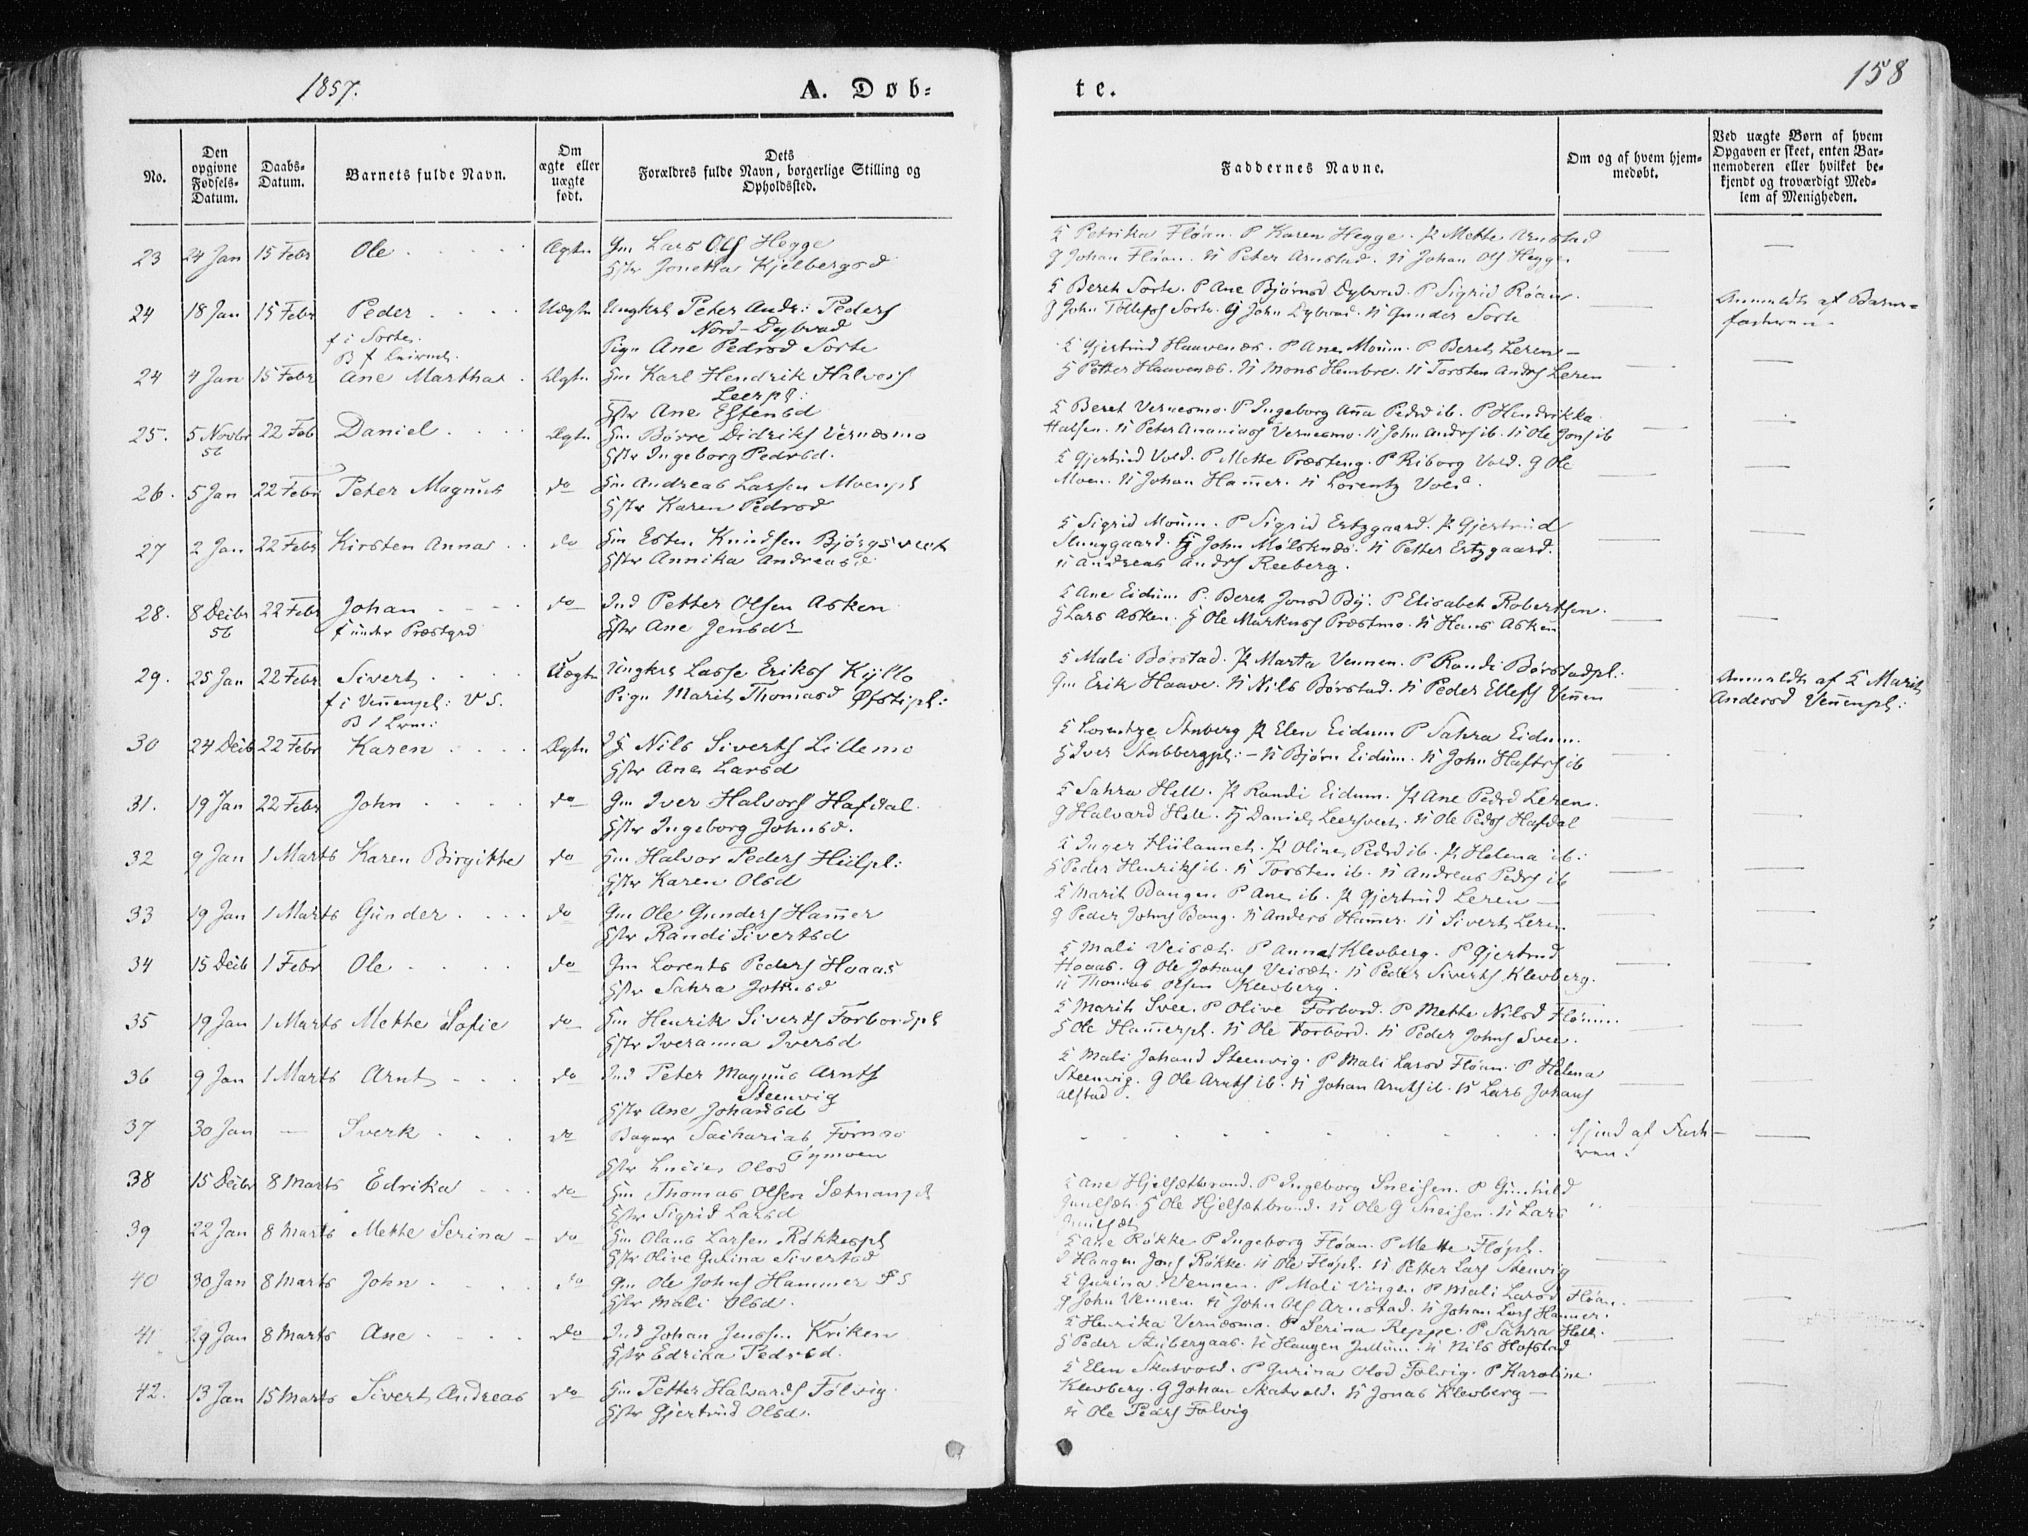 1857.
A. Døb-
te.
158
No.
Den opgivne Fødsels-Datum.
Daabs-Datum.
Barnets fulde Navn.
Om ægte eller uægte født.
Dets Forældres fulde Navn, borgerlige Stilling og Opholdssted.
Faddernes Navne.
Om og af hvem hjem-medøbt.
Ved uægte Børn af hvem Opgaven er skeet, enten Bar-nemoderen eller hvilket be-kjendt og troværdigt Med-lem af Menigheden.
23 24 Jan 15 Febr Ole Ægte Gm Lars Ols Hegge
Hstr Jonetta Kjelbergsd
Petrika Fløan. P Karen Hegge. Mette Arnstad
Johan Fløan. Peter Arnstad. Johan Ols Hegge
24 18 Jan 15 Febr Peder Uægte Ungkrl Peter Andr: Peders
Nord-Dybvad
f i Sorte
Pige Ane Pedrsd Sorte
Beret Sorte. P Ane Bjørnsd Dybvad. P Sigrid Røan
John Tollefss Sorte. G John Dybvad. Gunder Sorte
Anmeldt af Barne-
faderen.
24 4 Jan 15 Febr Ane Martha Ægte Hm Karl Hendrik Halvors
Leerpl:
Hstr Ane Estensd
Gjertrud Haavenæs. P Ane Moum. P Beret Leren
Petter Haavenæs. Mons Hembre. Torsten Andrs Leren
25. 5 Novbr 56 22 Feb Daniel Ægte Hm Børre Didriks Vernæsmo
Hstr Ingeborg Pedrsd.
Beret Vernesmo. P Ingeborg Anna Pedrsd ib. P Hendrikka
Halsen. Peter Ananiass Vernesmo. John Andrs ib. Ole Jons ib
26. 5 Jan 22 Febr Peter Magnus do Hm Andreas Larsen Moenpl
Hstr Karen Pedrsd
Gjertrud Vold. P Mette Præsteng. P Riborg Vold. G Ole
Moen. Johan Hamer. Lorentz Vold.
27 2 Jan 22 Febr Kirsten Anna do Hm Esten Knudsen Bjørgsveet
Hstr Annika Andreasd
Sigrid Moum. P Sigrid Ertzgaard. Gjertrud
John Mølsknæs. Petter Ertzgaard.
Andreas Andrs Reeberg.
28. 8 Decbr 56 22 Febr Johan do Ind Petter Olsen Asken
f under Præstgrd Hstr Ane Jensdr
Ane Eidum P. Beret Jonsd By. P Elisabeth Robertsen.
Lars Asken. Ole Markuss Præstmo. Hans Asken
29. 25 Jan 22 Febr Sivert Uægte Ungkrl Lasse Eriks Kyllo
f i Vennenpl: V S. Pige Marit Thomasd Øfstipl:
Mali Børstad. Marta Vennen. P Randi Børstadpl:
Gm Erik Haave. Nils Børstad. Peder Ellefs Vennen
Anmeldt af Marit
Andersd Vennenpl:
30 24 Decb 22 Febr Karen Ægte Nils Siverts Lillemo
Hstr Ane Larsd
Lorentze Stuberg Elen Eidum P Sahra Eidum.
Iver Stubbergpl: Bjørn Eidum. John Hafters ib
31. 19 Jan 22 Febr John do Gm Iver Halvors Hafdal
Hstr Ingeborg Johnsd.
Sahra Hell. Randi Eidum. Ane Pedrsd Leren.
G Halvard Hell. Daniel Leersveet. Ole Pedrs Hafdal
32 9 Jan 1 Marts Karen Birgitte do Hm Halvor Peders Hielpl:
Hstr Karen Olsd
Inger Oline Pedrsd ib. Helena ib.
Peder Henriks ib. Torsten ib. Andreas Pedrs ib
33 19 Jan 1 Marts Gunder do Gm Ole Gunders Hamer
Hstr Randi Sivertsd
Marit Bangen P Ane ib. Gjertrud Leren
G Peder Johns Bang. Anders Hamer. Sivert Leren
34 15 Decb 1 Febr Ole do Gm Lorents Peders Hoaas
Hstr Sahra Johnsd
Mali Veisæt. P Anna Klevberg. P Gjertrud
Hoaas. G Ole Johans Veisæt. Peder Siverts Klevberg.
Thomas Olsen Klevberg.
35 19 Jan 1 Marts Mette Sofie do Hm Henrik Siverts Forbordpl
Hstr Iveranna Iversd
Marit Svee. P Olive Forbord. P Mette Nilsd
Ole Hamerpl. Ole Forbord. Peder Johns Svee.
36 9 Jan 1 Marts Arnt do Ind Peter Magnus Arnts
Steenvig
Hstr Ane Johansd
Mali Johansd Steenvig. P Mali Larsd Fløan. P Helena
Steenvig. G Ole Arnts ib. Johan Arnts ib. Lars Johans
Alstad.
37 30 Jan — Sverk do Bager Sacharias Fornæs
Hstr Lucie Olsd
hjemd af Fade-
ren.
38 15 Decbr 8 Marts Edrika do Hm Thomas Olsen Sætnanpl
Hstr Sigrid Larsd
Ane Hjelsætbrand. P Ingeborg Sneisen. P Gunhild
Ole Hjelsætbrand. Ole G Sneisen. Lars
39 22 Jan 8 Marts Mette Serina do Hm Olaus Larsen Røkkepl
Hstr Olive Gurina Sivertsd
Ane Røkke P Ingeborg Fløan. P Mette Fløpl.
Haagen Jons Røkke Ole Fløpl. Petter Lars Steenvig
40 30 Jan 8 Marts John do Gm Ole Johns Hammer
Hstr Mali Olsd.
Gurina Vennen. P Mali Vinge P Mali Larsd Fløan.
John Vennen. John Ols Arnstad. Johan Lars Hamer.
41 29 Jan 8 Marts Ane do Ind Johan Jenssen Kriken
Hstr Edrika Pedrsd.
Henrika Vernæsmo. P Serina Reppe. P Sahra Hell.
Peder Stubergaas. Haagen Nils Hofstad
42. 13 Jan 15 Marts Sivert Andreas do Hm Petter Halvards Følvig
Hstr Gjertrud Olsd.
Elen Skatvold. P Gurina Olsd Følvig. P Karoline
Klevberg. G Johan Skatvold. Jonas Klevberg
Ole Pedrs Følvig